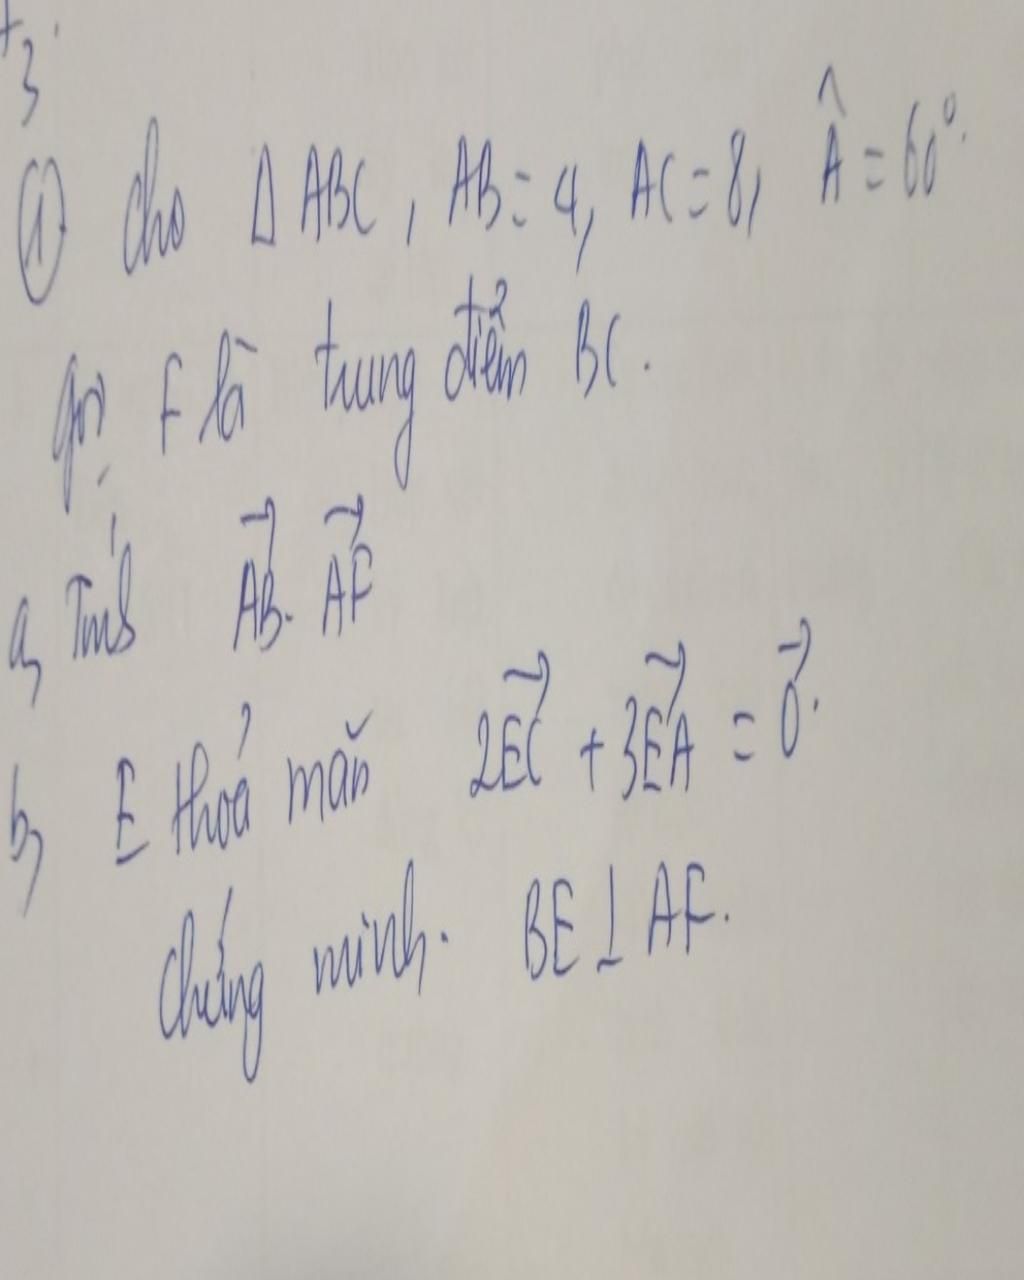 3.
① Cho Δ ABC, AB = 4, AC = 8, Â = 60°.
gọi F là trung điểm BC.
a, Tính $\overrightarrow{AB}.\overrightarrow{AF}$
b, E thoả mãn $2\overrightarrow{EC} + 3\overrightarrow{EA} = \overrightarrow{0}$.
chứng minh. BE ⊥ AF.